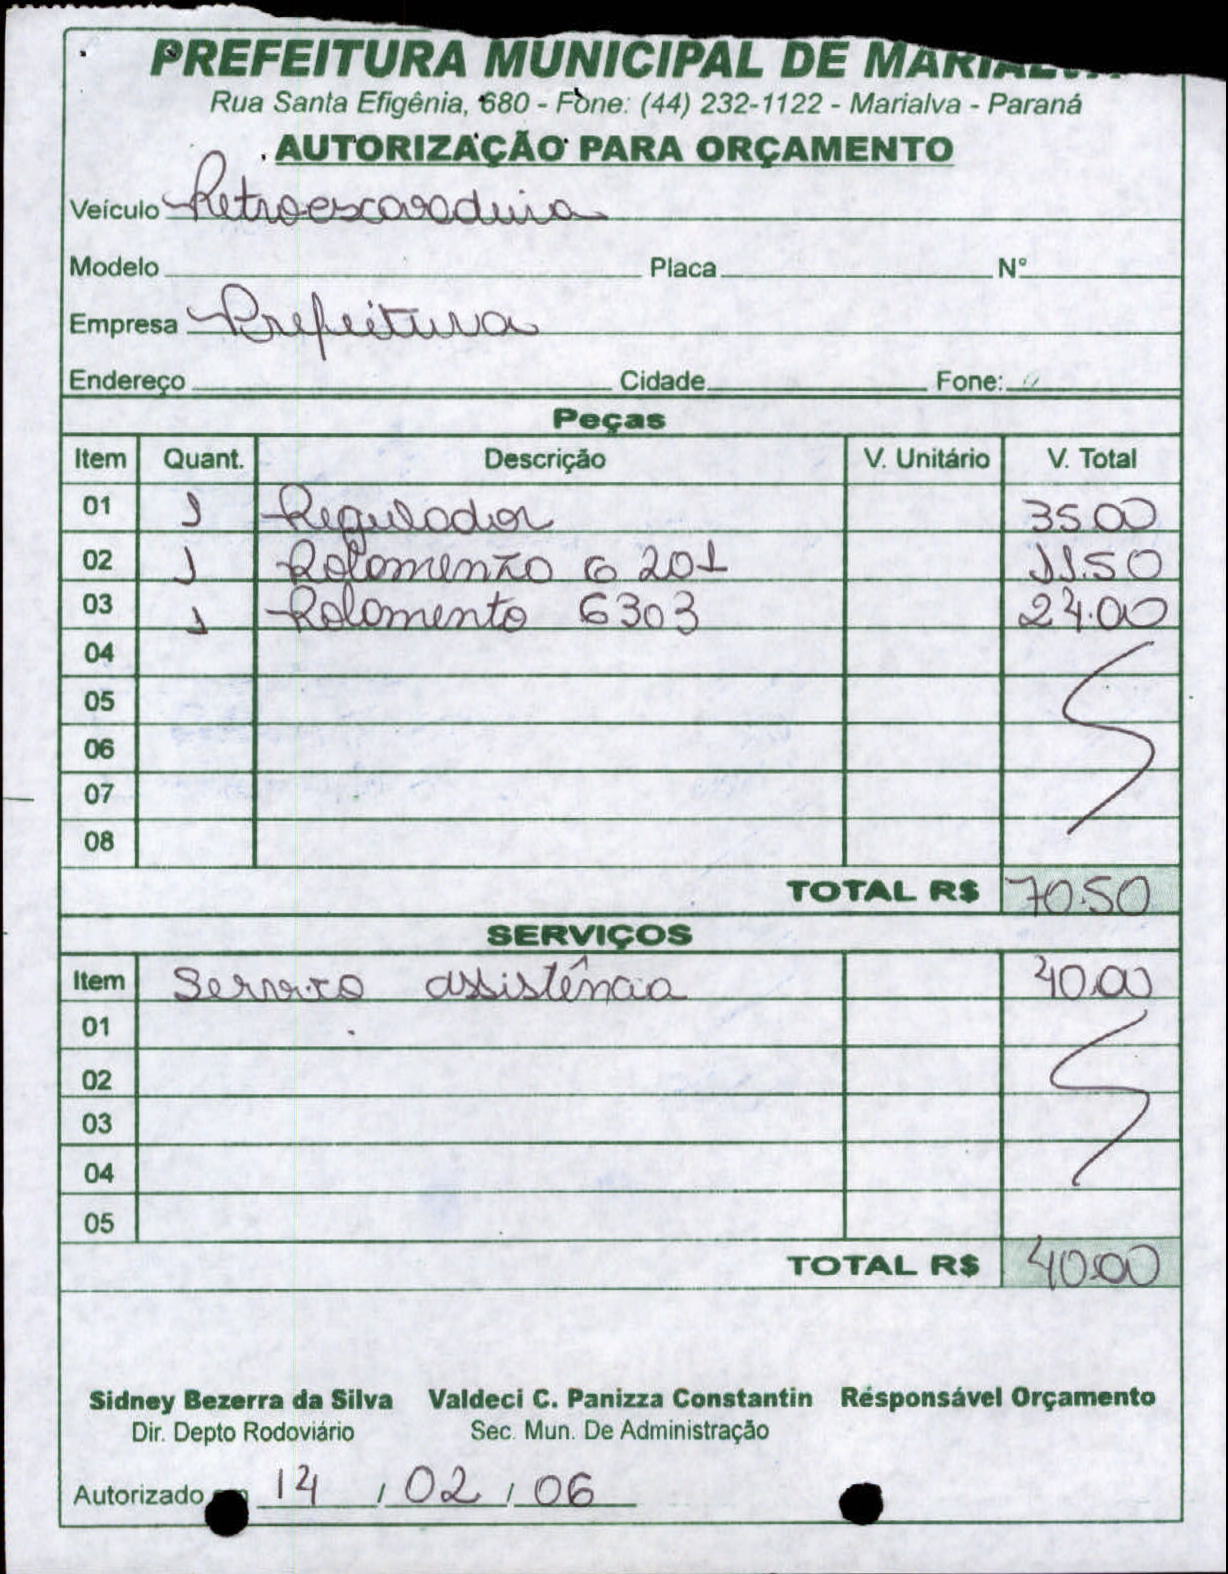 PREFEITURA MUNICIPAL DE MARIALVA
Rua Santa Efigênia, 680 - Fone: (44) 232-1122 - Marialva - Paraná
AUTORIZAÇÃO PARA ORÇAMENTO
Veículo Retroescavadeira
Modelo Placa Nº
Empresa Prefeitura
Endereço Cidade Fone:
Peças
Item Quant. Descrição V. Unitário V. Total
01 1 Regulador 35.00
02 1 Rolamento 6 201 11.50
03 1 Rolamento 6303 24.00
04
05
06
07
08
TOTAL R$ 70.50
SERVIÇOS
Item Serviço assistência 40.00
01
02
03
04
05
TOTAL R$ 40.00
Sidney Bezerra da Silva Valdeci C. Panizza Constantin Responsável Orçamento
Dir. Depto Rodoviário Sec. Mun. De Administração
Autorizado em 14 / 02 / 06